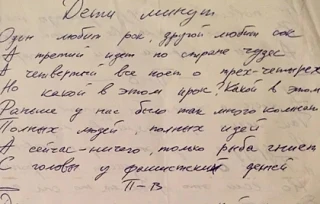 Дети минут
Один любит рок, другой любит сок
А третий идет по стране чудес
А четвертый все поет о трех-четырех
Но какой в этом прок? Какой в этом
Раньше у нас было так много комнат
Полных людей, полных идей
А сейчас - ничего, только рыба гниет
С головы у фашистских детей
П-в